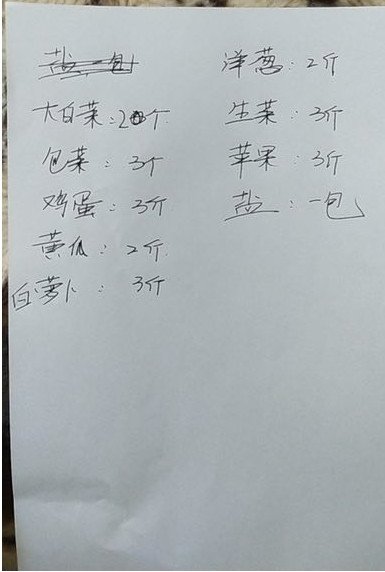 大白菜：2个
包菜：3个
鸡蛋：3斤
黄瓜：2斤
白萝卜：3斤
洋葱：2斤
生菜：3斤
苹果：3斤
盐：一包